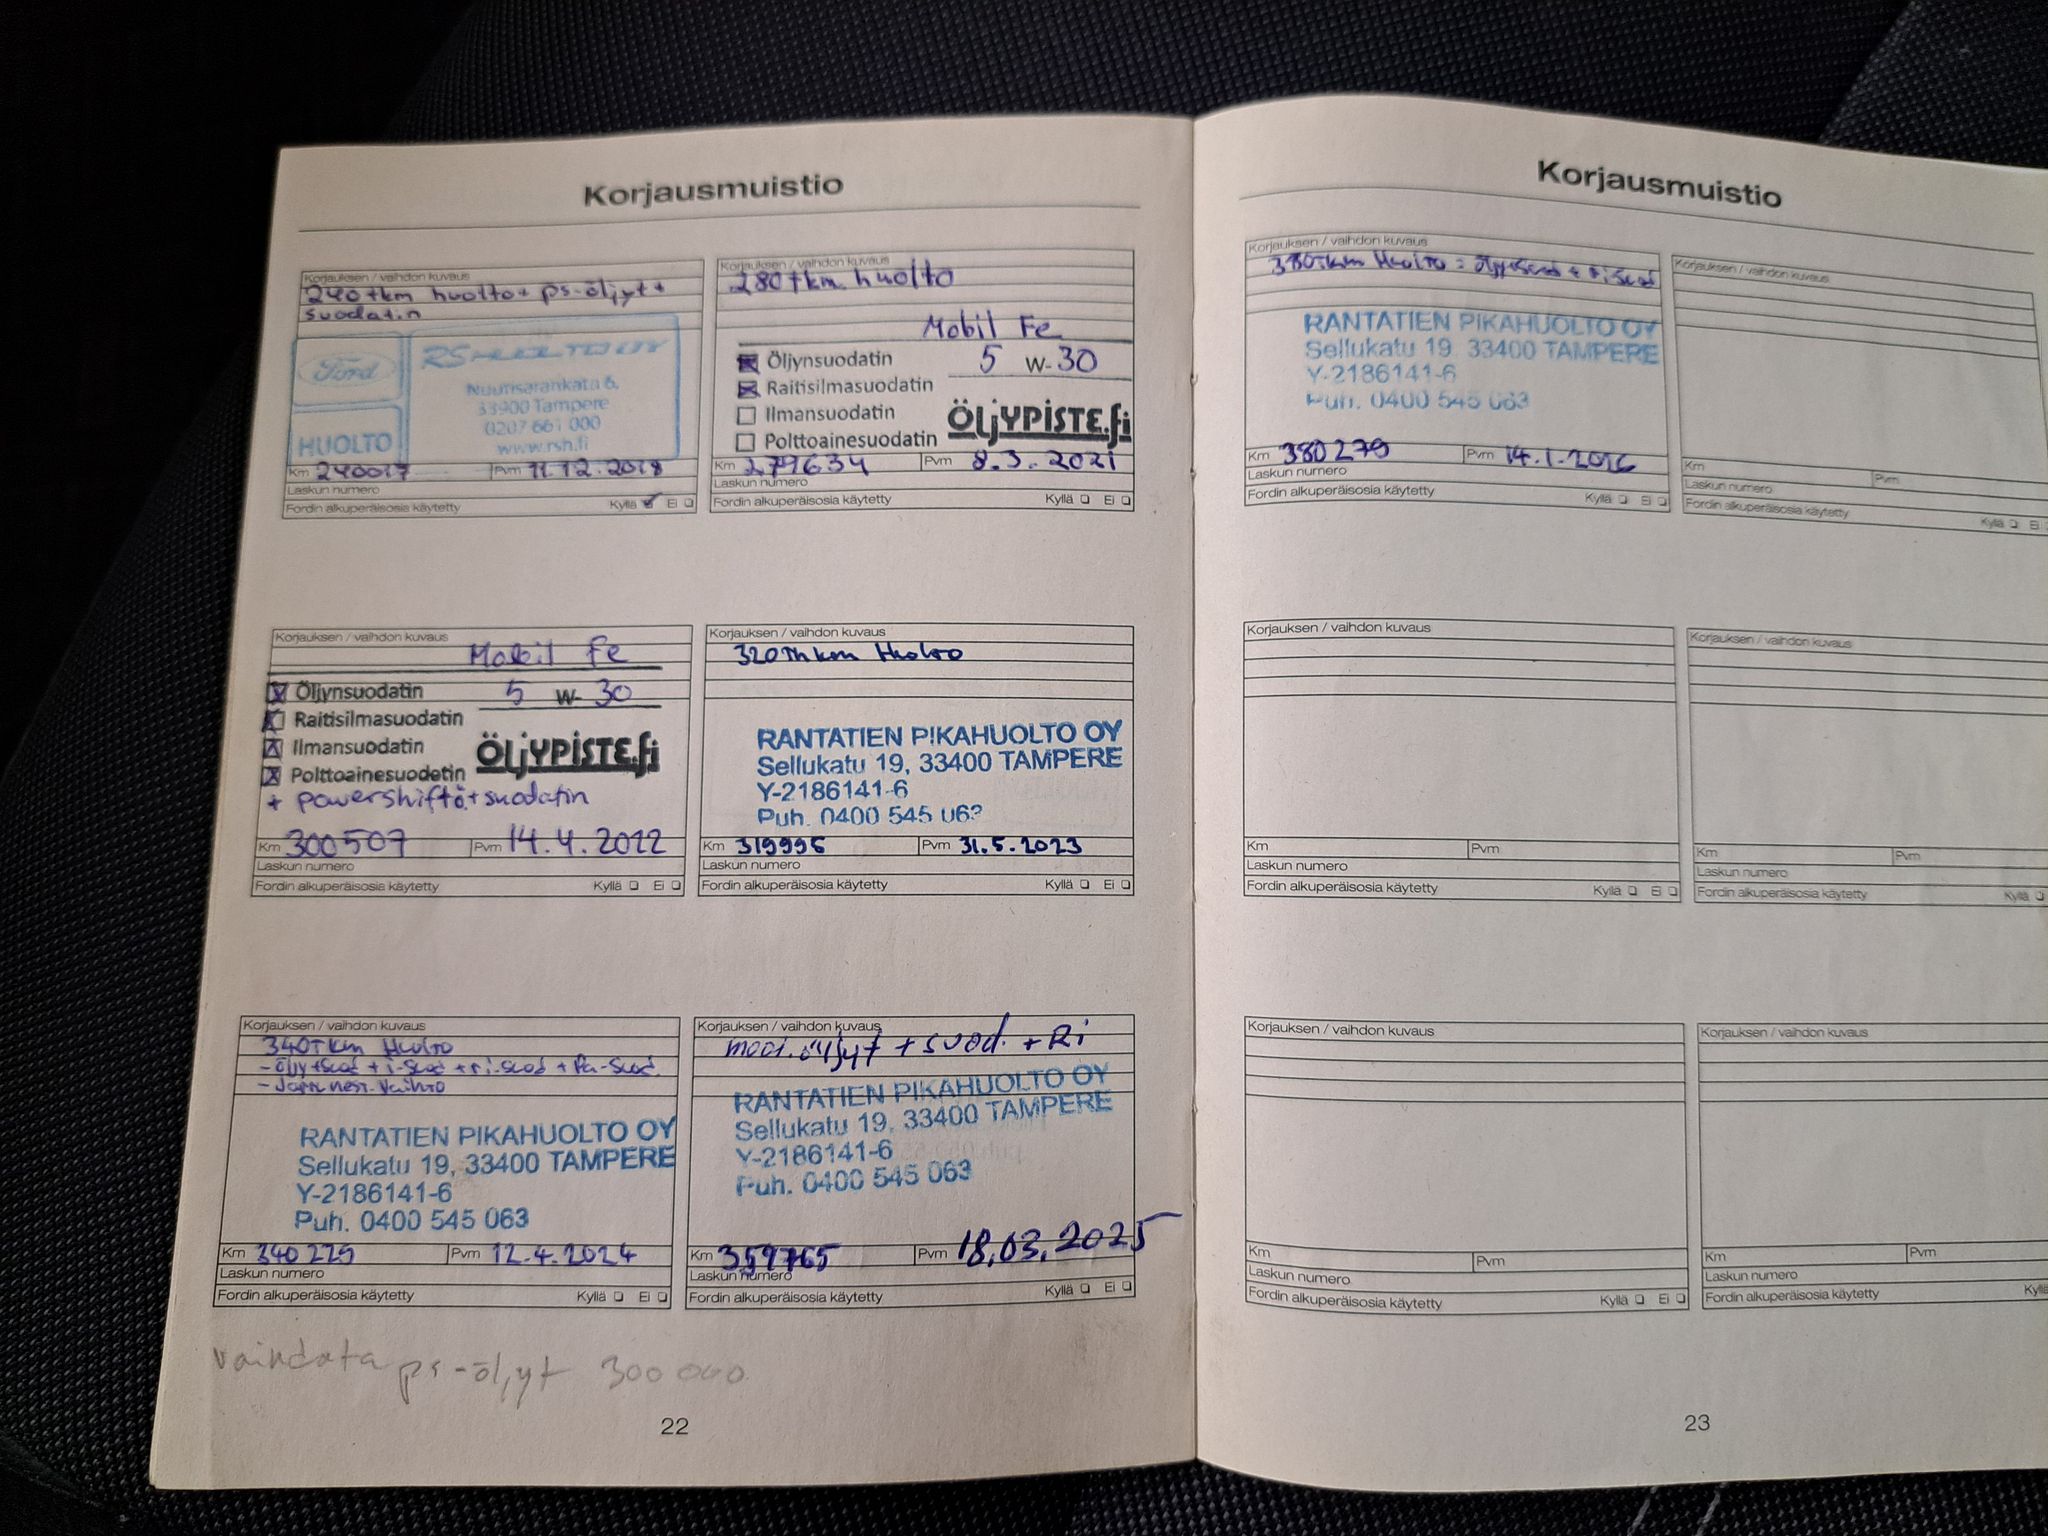 Korjausmuistio
Korjauksen / vaihdon kuvaus
240 tkm huolto + ps-öljyt +
suodatin
Ford
HUOLTO
RS HUOLTO OY
Nuutisarankatu 6,
33900 Tampere
0207 661 000
www.rsh.fi
Km 240017 Pvm 11.12.2018
Laskun numero
Fordin alkuperäisosia käytetty Kyllä Ei
Korjauksen / vaihdon kuvaus
280 tkm huolto
Mobil Fe
Öljynsuodatin 5 W-30
Raitisilmasuodatin
Ilmansuodatin
Polttoainesuodatin
ÖLJYPISTE.fi
Km 279634 Pvm 8.3.2021
Laskun numero
Fordin alkuperäisosia käytetty Kyllä Ei
Korjauksen / vaihdon kuvaus
Mobil Fe
Öljynsuodatin 5 W-30
Raitisilmasuodatin
Ilmansuodatin
Polttoainesuodatin
ÖLJYPISTE.fi
+ powershiftö. + suodatin
Km 300507 Pvm 14.4.2022
Laskun numero
Fordin alkuperäisosia käytetty Kyllä Ei
Korjauksen / vaihdon kuvaus
320 Tkm Huolto
RANTATIEN PIKAHUOLTO OY
Sellukatu 19, 33400 TAMPERE
Y-2186141-6
Puh. 0400 545 063
Km 319995 Pvm 31.5.2023
Laskun numero
Fordin alkuperäisosia käytetty Kyllä Ei
Korjauksen / vaihdon kuvaus
340T km Huolto
- Öljy+Suod + i-Suod + ri-Suod + Pa-Suod.
- Jarrunest. Vaihto
RANTATIEN PIKAHUOLTO OY
Sellukatu 19, 33400 TAMPERE
Y-2186141-6
Puh. 0400 545 063
Km 340229 Pvm 12.4.2024
Laskun numero
Fordin alkuperäisosia käytetty Kyllä Ei
Korjauksen / vaihdon kuvaus
moot.öljyt + suod. + Ri
RANTATIEN PIKAHUOLTO OY
Sellukatu 19, 33400 TAMPERE
Y-2186141-6
Puh. 0400 545 063
Km 359765 Pvm 18.03.2025
Laskun numero
Fordin alkuperäisosia käytetty Kyllä Ei
vaihdata ps-öljyt 300 000
22
Korjausmuistio
Korjauksen / vaihdon kuvaus
380Tkm Huolto = Öljy+Suod + ri-Suod
RANTATIEN PIKAHUOLTO OY
Sellukatu 19, 33400 TAMPERE
Y-2186141-6
Puh. 0400 545 063
Km 380279 Pvm 14.1.2026
Laskun numero
Fordin alkuperäisosia käytetty Kyllä Ei
Korjauksen / vaihdon kuvaus
Km Pvm
Laskun numero
Fordin alkuperäisosia käytetty Kyllä Ei
Korjauksen / vaihdon kuvaus
Km Pvm
Laskun numero
Fordin alkuperäisosia käytetty Kyllä Ei
Korjauksen / vaihdon kuvaus
Km Pvm
Laskun numero
Fordin alkuperäisosia käytetty Kyllä
Korjauksen / vaihdon kuvaus
Km Pvm
Laskun numero
Fordin alkuperäisosia käytetty Kyllä Ei
Korjauksen / vaihdon kuvaus
Km Pvm
Laskun numero
Fordin alkuperäisosia käytetty Kyllä
23